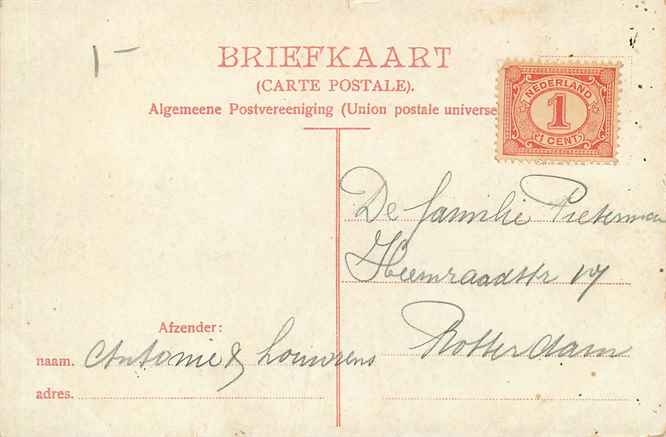 1-
BRIEFKAART
(CARTE POSTALE).
Algemeene Postvereeniging (Union postale universe
NEDERLAND
1
1 CENT
De familie Pieterman
Heemraadstr 17
Rotterdam
Afzender:
naam. Antonie & Louwrens
adres.